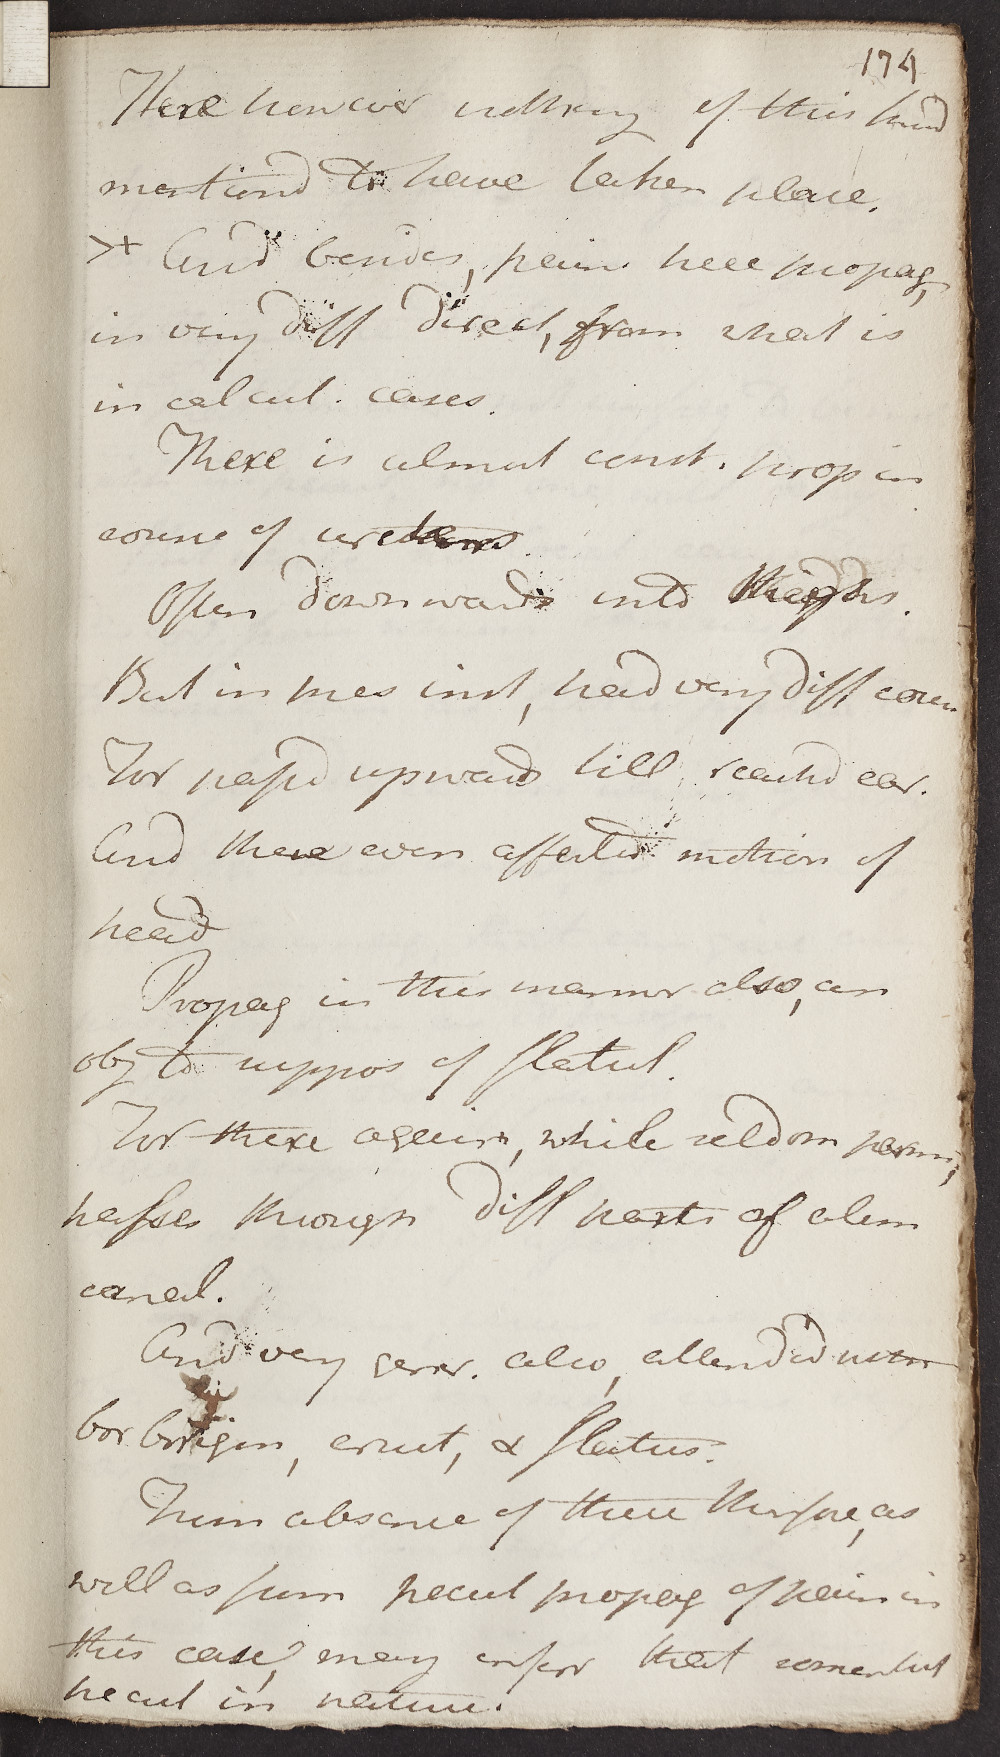 174
Here however nothing of this kind
mentiond to have taken place.
>+ And besides, pain here propag,
in very diff direct, from what is
in calcul. cases.
There is almost const. prop in
course of ureters.
Often downwards into thighs.
But in pres inst, had very diff cour
For passd upwards till reachd ear.
And there even affected motion of
head
Propag in this manner also, an
obj to suppos of flatul.
For there again, while seldom perm,
passes through diff parts of alim
canal.
And very gener. also, attended with
borborigm, eruct, & flatus.
From absence of these therefore, as
well as from pecul propag of pain in
this case, may infer that somewhat
pecul in nature.